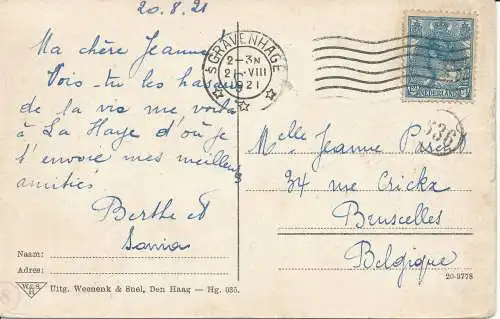 20.8.21
Ma chère Jeanne
Vois-tu les hasards
de la vie me voilà
à La Haye d'où je
t'envoie mes meilleurs
amitiés
Berthe et
'S GRAVENHAGE
2-3N
21.VIII
1921
NEDERLAND
536
Melle Jeanne
34 rue Crickx
Bruxelles
Belgique
Naam:
Adres:
W.&S.
Uitg. Weenenk & Snel, Den Haag — Hg. 035.
20-9778